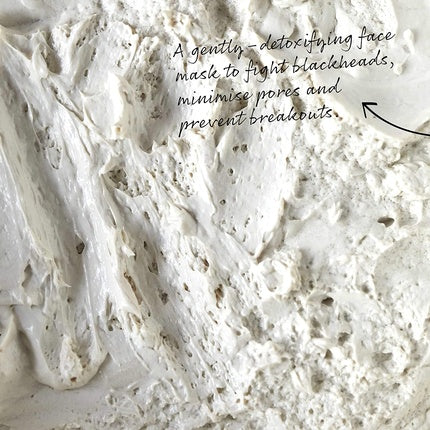 A gently-detoxifying face
mask to fight blackheads,
minimise pores and
prevent breakouts.